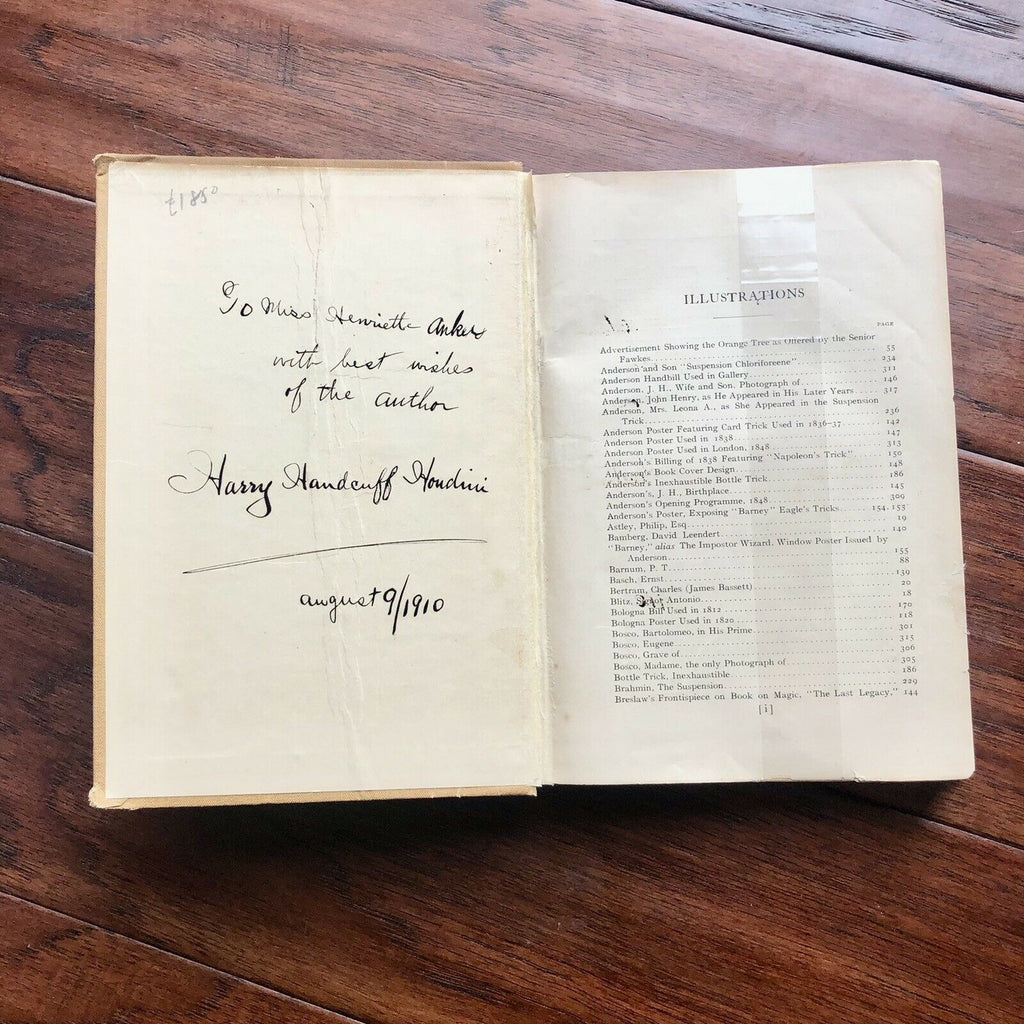 £185⁰
To Miss Henriette Anker
with best wishes
of the author
Harry Handcuff Houdini
august 9/1910
ILLUSTRATIONS
PAGE
Advertisement Showing the Orange Tree as Offered by the Senior
Fawkes 55
Anderson and Son "Suspension Chloriforeene" 234
Anderson Handbill Used in Gallery 311
Anderson, J. H., Wife and Son, Photograph of 146
Anderson, John Henry, as He Appeared in His Later Years 317
Anderson, Mrs. Leona A., as She Appeared in the Suspension
Trick 236
Anderson Poster Featuring Card Trick Used in 1836-37 142
Anderson Poster Used in 1838 147
Anderson Poster Used in London, 1848 313
Anderson's Billing of 1838 Featuring "Napoleon's Trick" 150
Anderson's Book Cover Design 148
Anderson's Inexhaustible Bottle Trick 186
Anderson's, J. H., Birthplace 145
Anderson's Opening Programme, 1848 309
Anderson's Poster, Exposing "Barney" Eagle's Tricks 154, 153
Astley, Philip, Esq 19
Bamberg, David Leendert 140
"Barney," alias The Impostor Wizard. Window Poster Issued by
Anderson 155
Barnum, P. T. 88
Basch, Ernst 139
Bertram, Charles (James Bassett) 20
Blitz, Signor Antonio 18
Bologna Bill Used in 1812 170
Bologna Poster Used in 1820 118
Bosco, Bartolomeo, in His Prime 301
Bosco, Eugene 315
Bosco, Grave of 306
Bosco, Madame, the only Photograph of 305
Bottle Trick, Inexhaustible 186
Brahmin, The Suspension 229
Breslaw's Frontispiece on Book on Magic, "The Last Legacy," 144
[i]